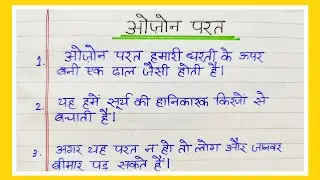 ओज़ोन परत
1. ओज़ोन परत हमारी धरती के ऊपर
बनी एक ढाल जैसी होती है।
2. यह हमें सूर्य की हानिकारक किरणों से
बचाती है।
3. अगर यह परत न हो तो लोग और जानवर
बीमार पड़ सकते हैं।